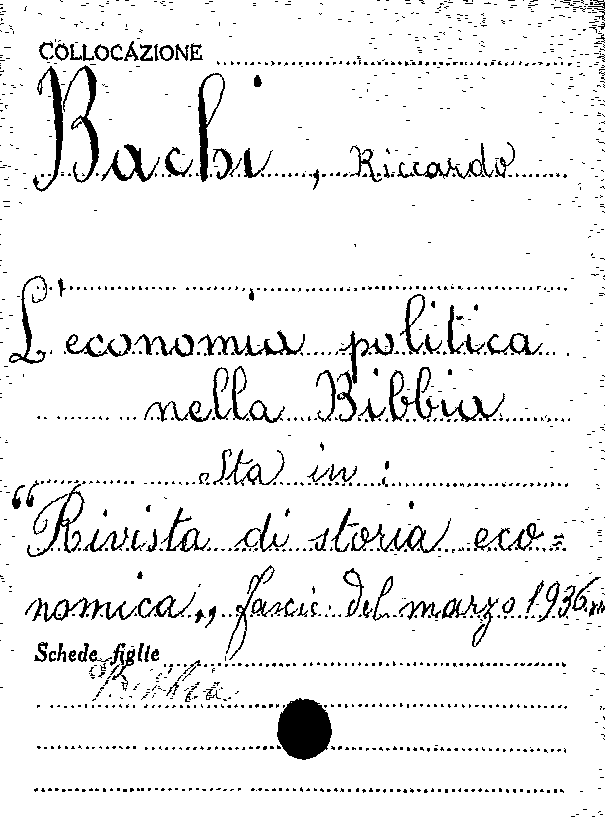 COLLOCAZIONE
Bachi, Riccardo
L'economia politica
nella Bibbia
Sta in:
"Rivista di storia eco=
nomica,, fascic. del marzo 1936
Schede figlie
Bibbia